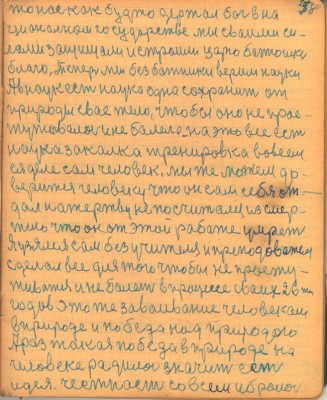 58
то нас как будто держал бог в на
циональном государстве мы своими си
лами защищали и строили царю батюшки
благо, Теперь мы без батюшки верим науки
А в науке есть наука одна сохранит от
природы свае тело, чтобы оно не прос
тутовалось и не балело, на это все есть
наука закалка тренировка во всем
сам человек. мы же можем до
верится человеку что он сам себя от
дал на жертву не посчитался из смер
тию что он от этой работе умрет
Я взялся сам без учителя и преподователя
сделал все для того чтобы не просту
живатся и не балеть в процессе своих 26ти
годов это же завоевание человеком
в природе и победа над природою
А раз такая победа в природе на
человеке родилось значит есть
идея. честност совсем и бралос